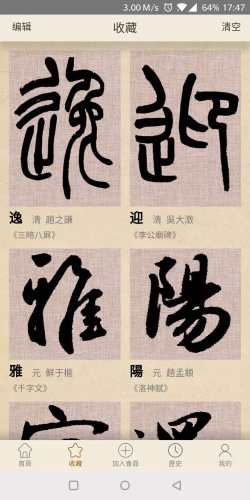 3.00 M/s 64% 17:47
编辑 收藏 清空
逸 迎
逸 清 趙之謙
《三略八屏》
迎 清 吳大澂
《李公廟碑》
雅 陽
雅 元 鲜于樞
《千字文》
陽 元 趙孟頫
《洛神賦》
首頁 收藏 加入會員 歷史 我的